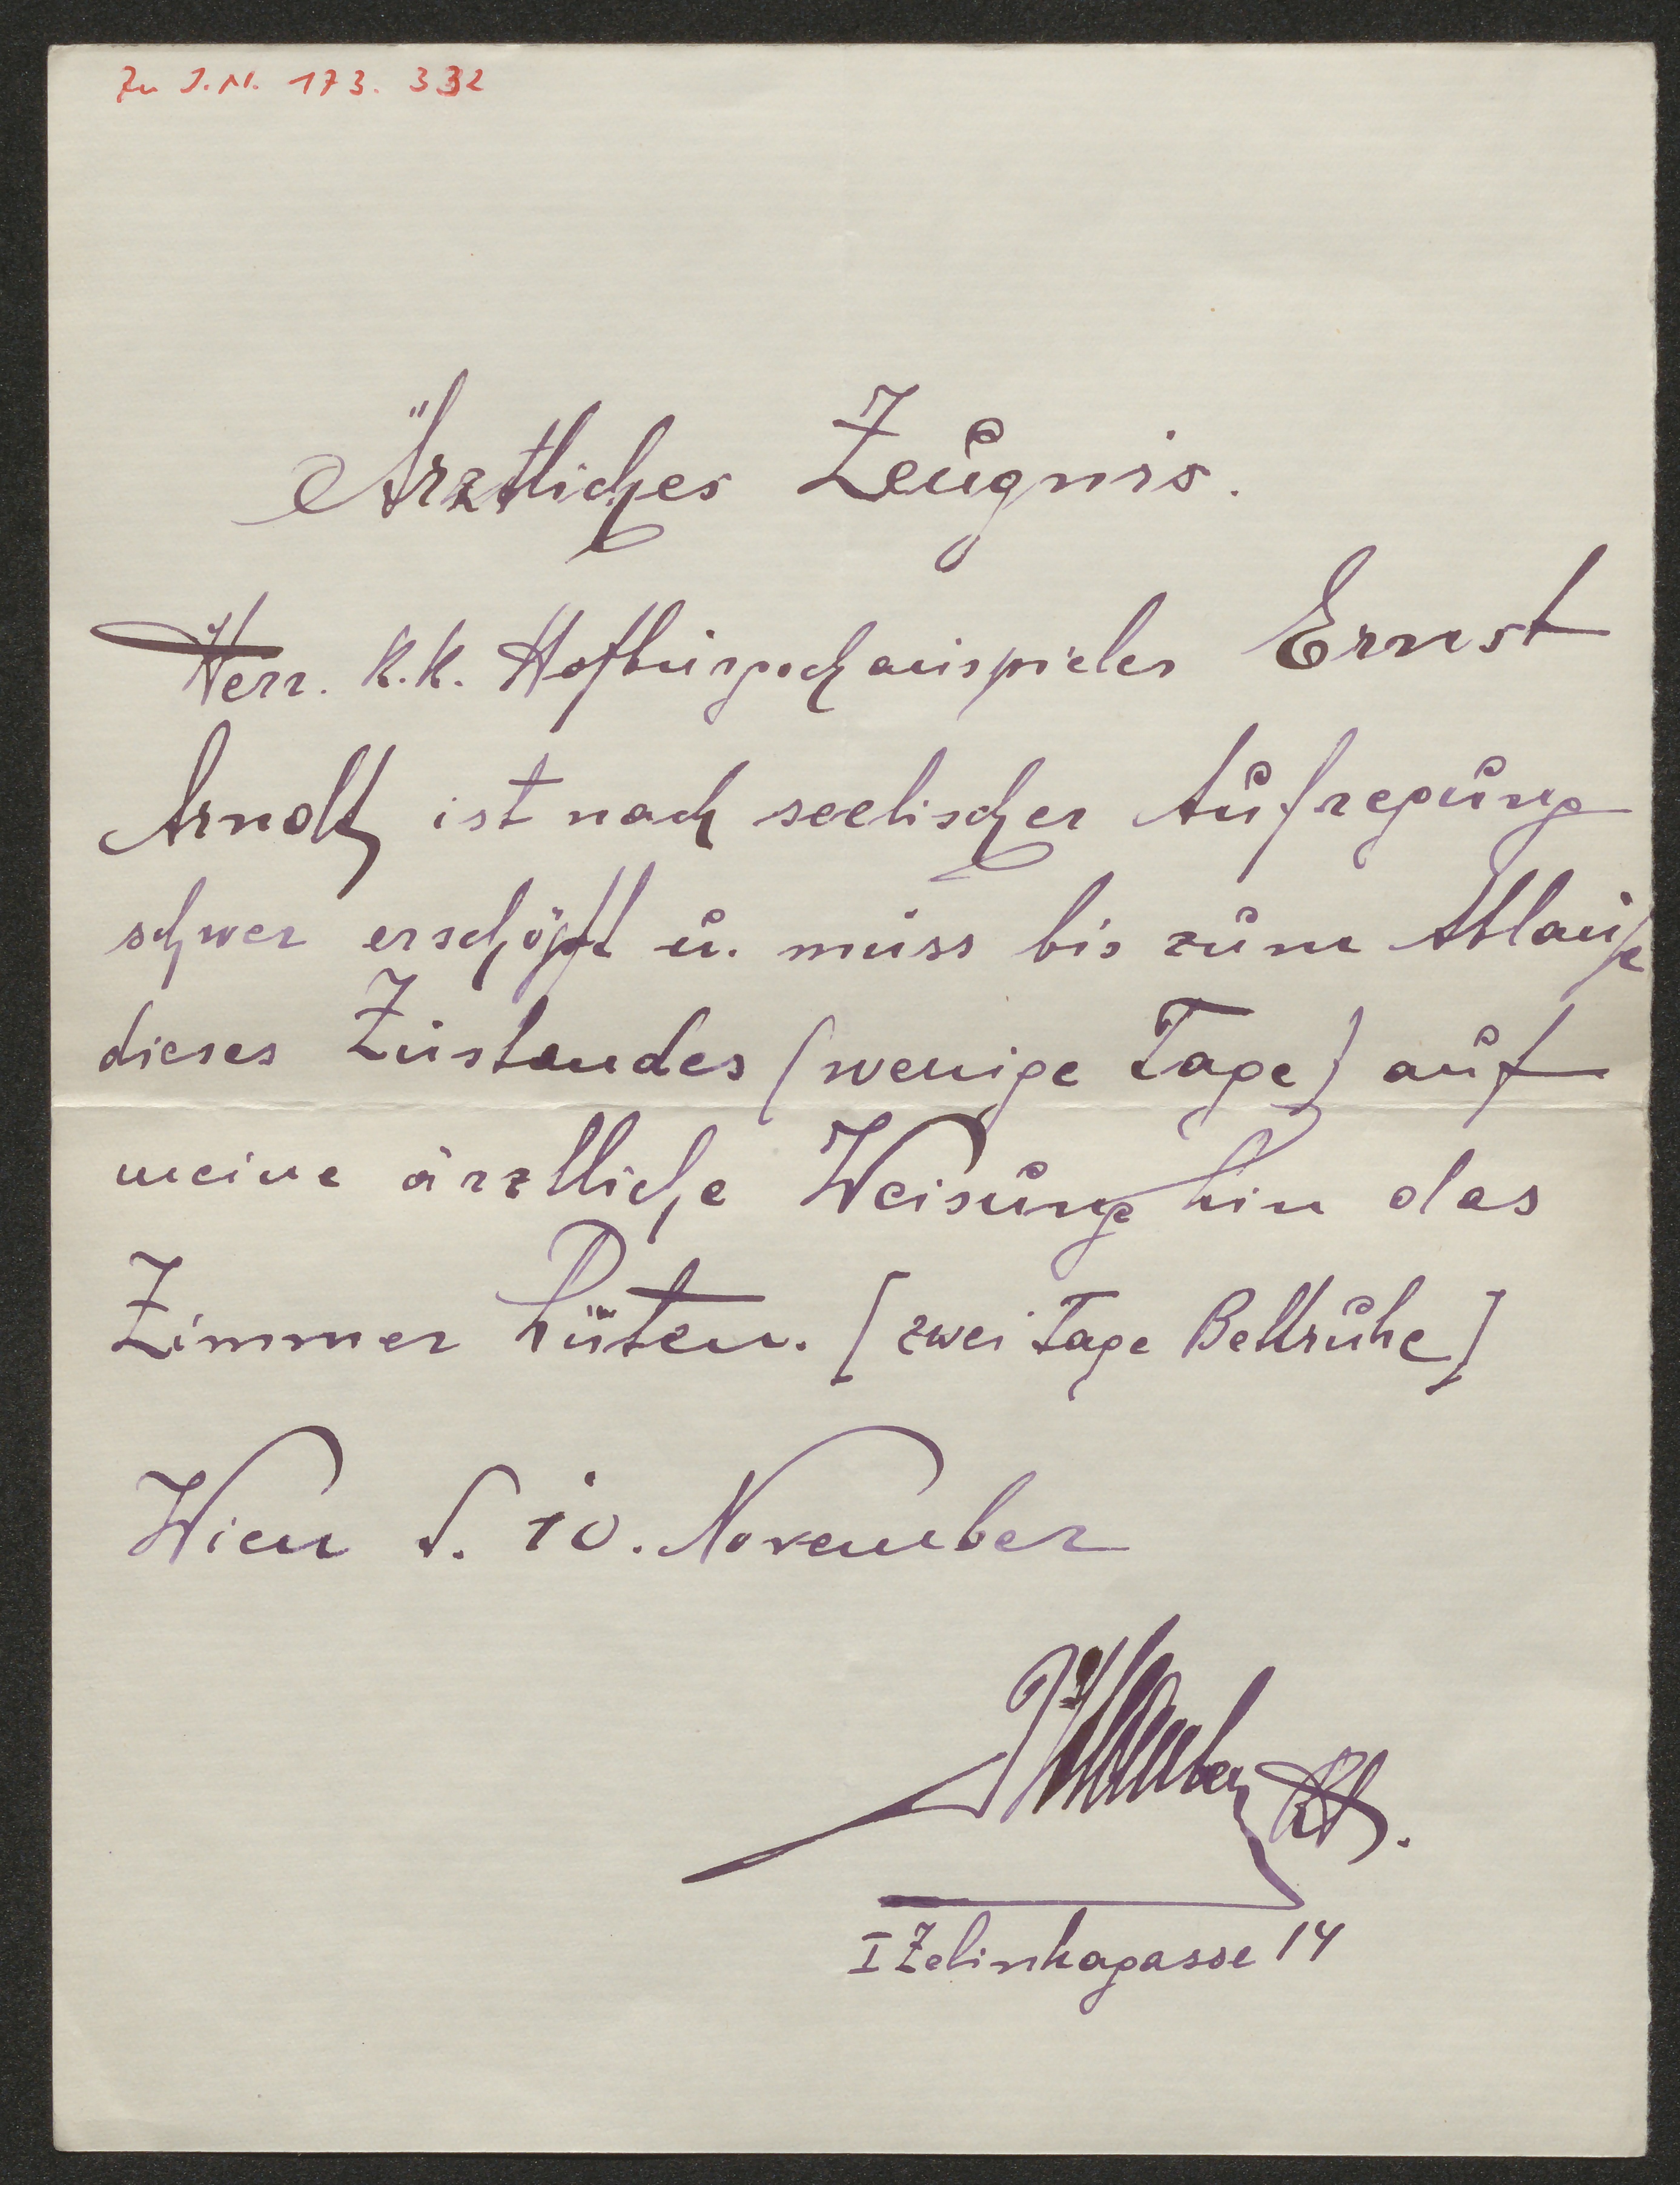 Zu I.N. 173.332
Ärztliches Zeugnis.
Herr. k.k. Hofburgschauspieler Ernst
Arndt ist nach seelischer Aufregung
schwer erschöpft u. muss bis zum Ablaufe
dieses Zustandes (wenige Tage) auf
meine ärztliche Weisung hin das
Zimmer hüten. [zwei Tage Bettruhe]
Wien d. 10. November
I Zelinkagasse 14